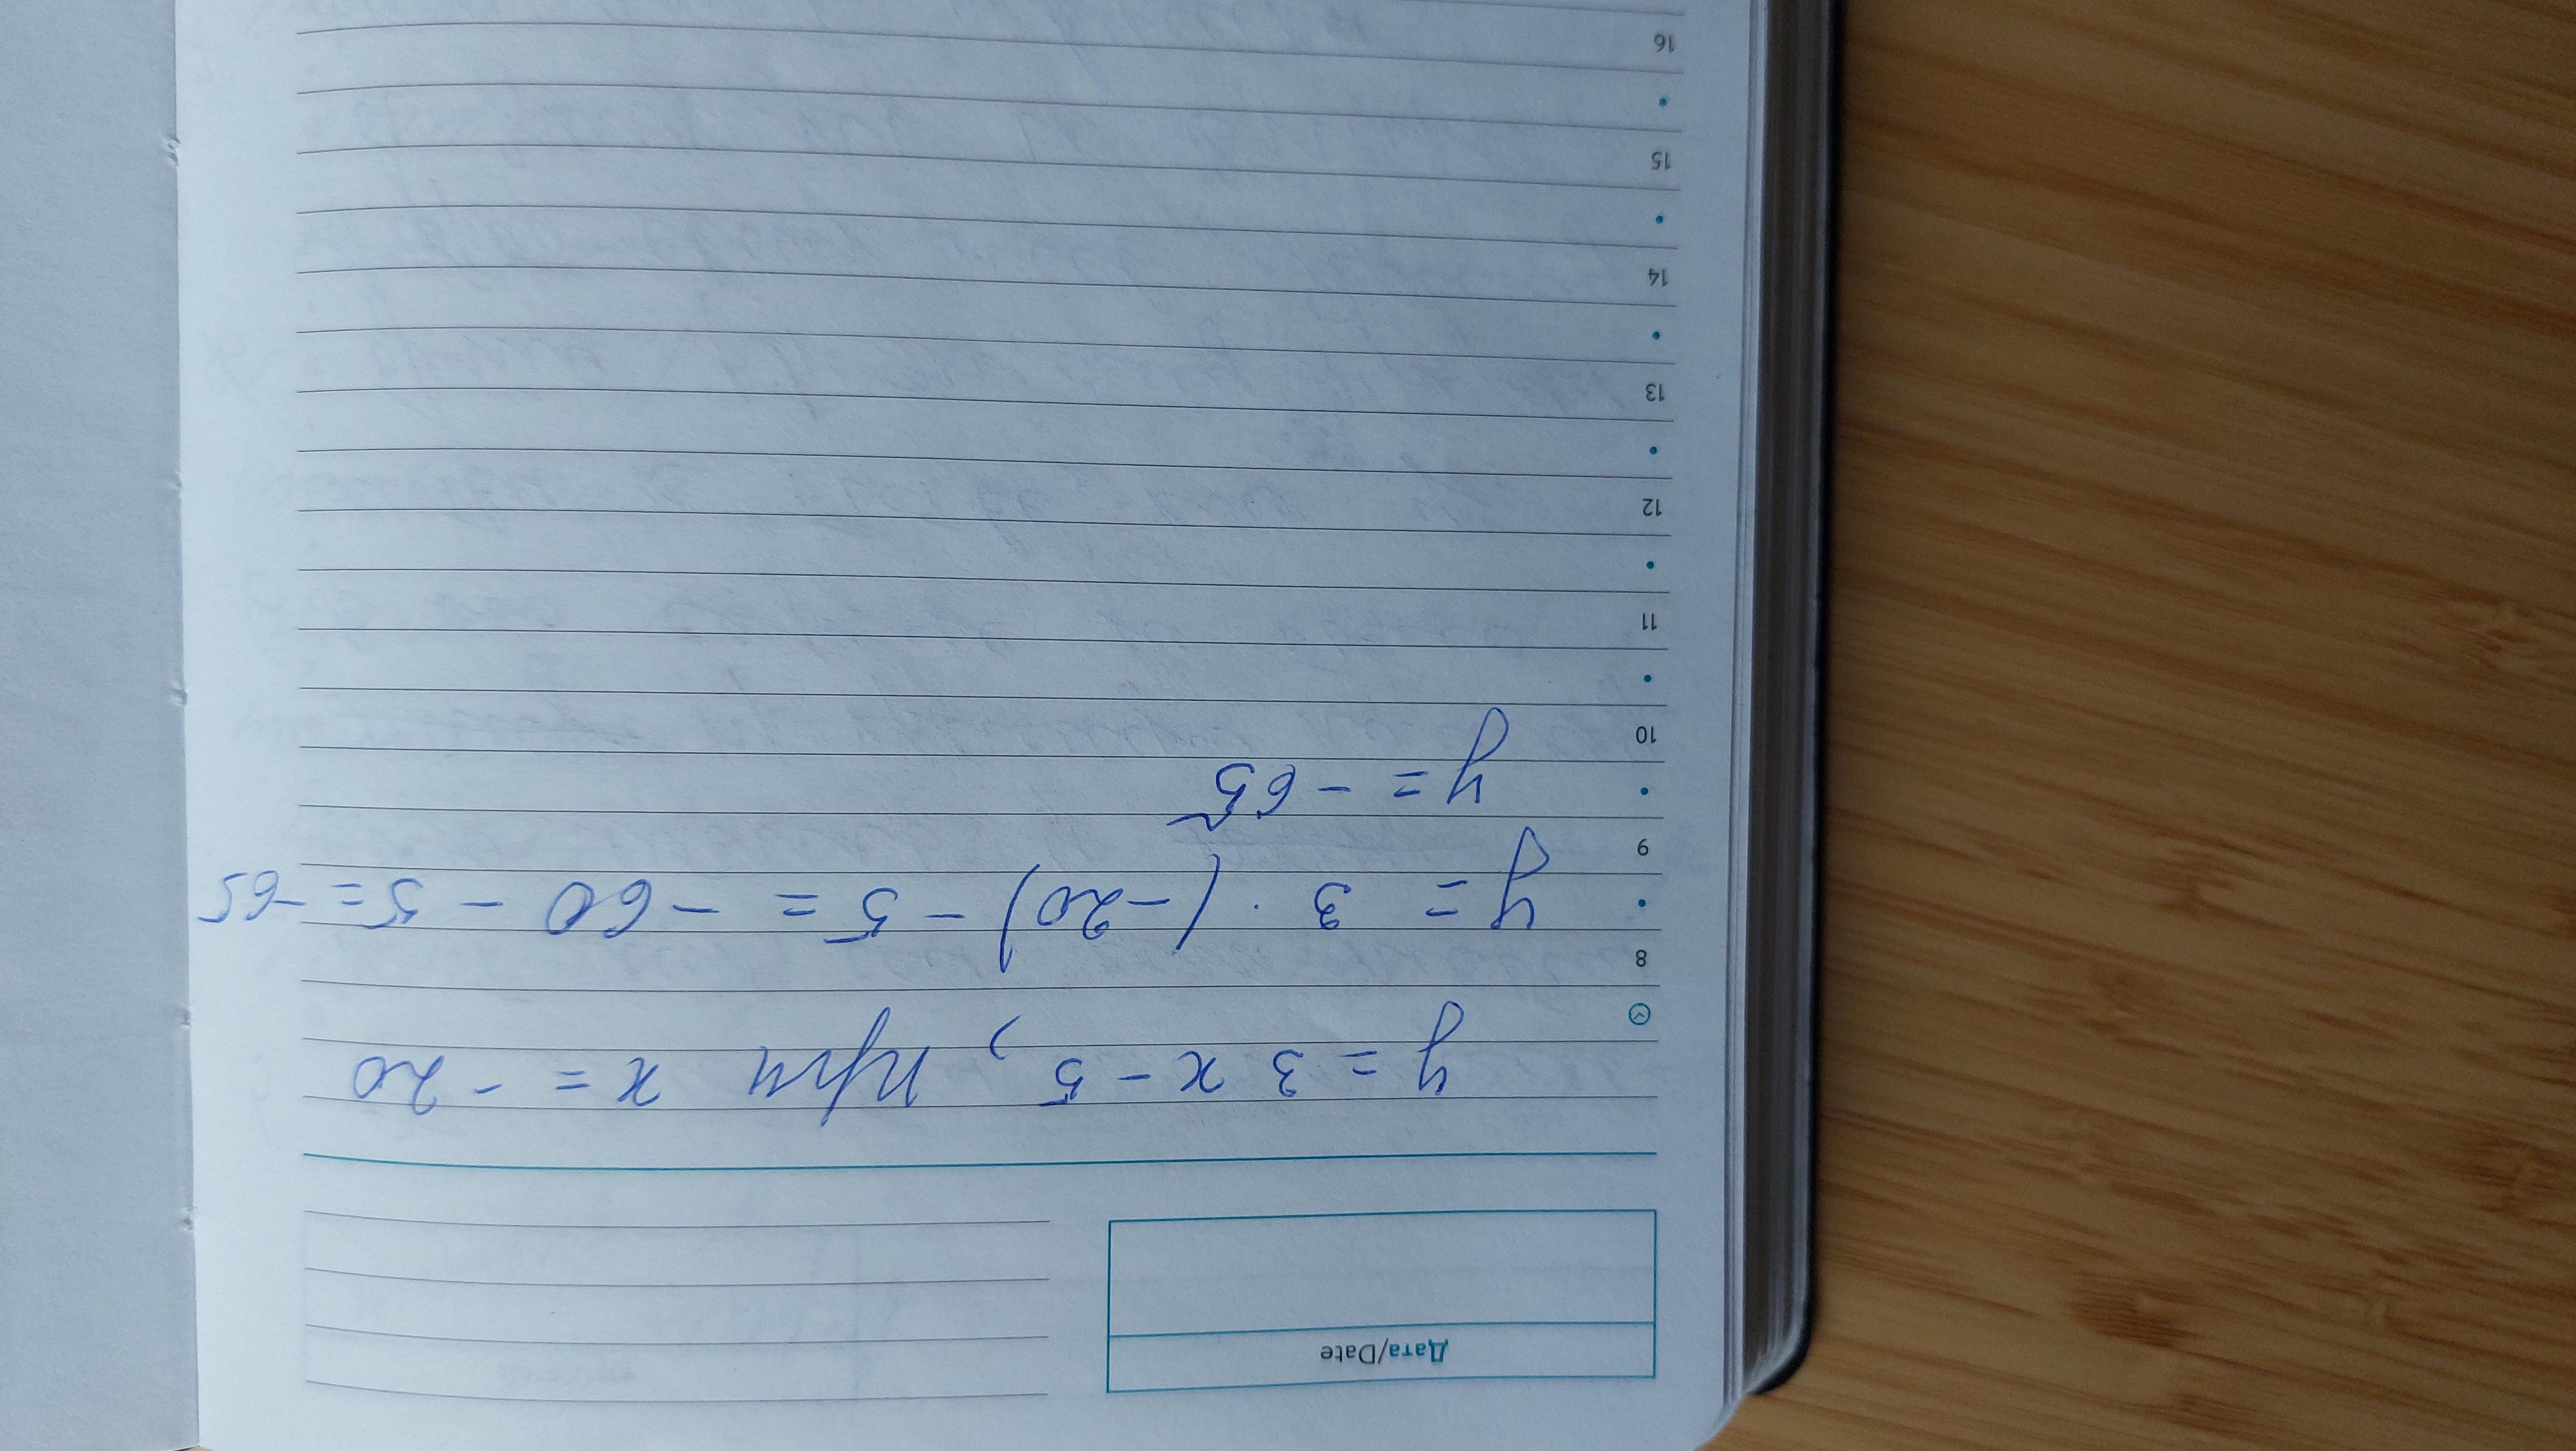 Дата/Date
y = 3x - 5, при x = -20
8
y = 3 · (-20) - 5 = -60 - 5 = -65
9
y = -65
10
11
12
13
14
15
16